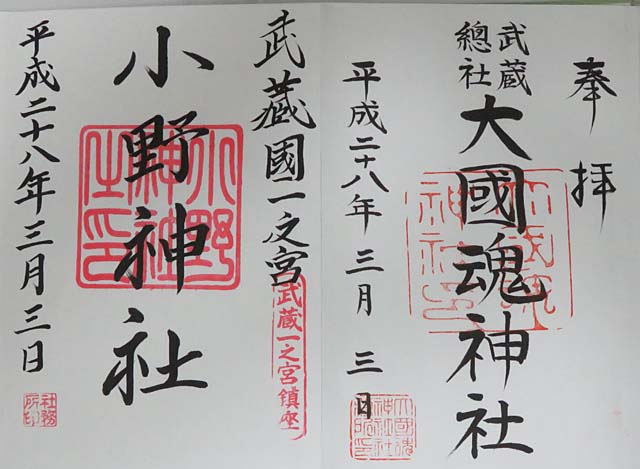 奉拝
武蔵
總社
大國魂神社
平成二十八年 三月 三日
武蔵國一之宮
武蔵一之宮鎮座
小野神社
小野
神社
之印
平成二十八年三月三日
社務
所印